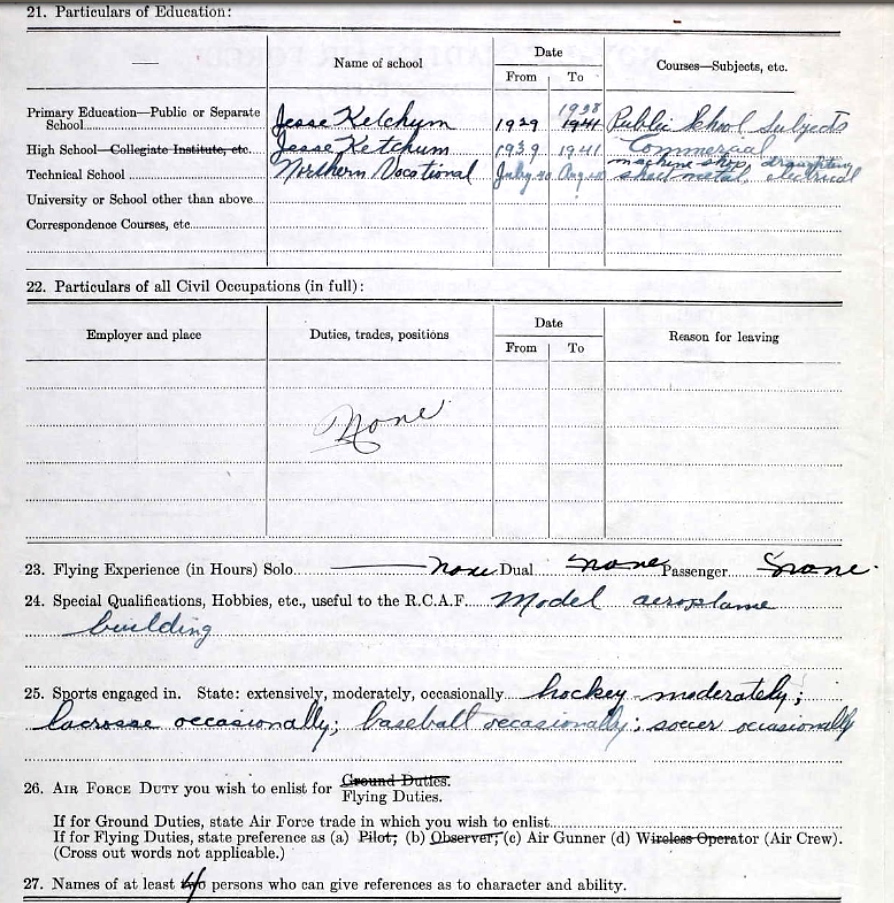 21. Particulars of Education:
Name of school Date Courses—Subjects, etc.
From To
1938
Primary Education—Public or Separate School Jesse Ketchum 1929 1941 Public School Subjects
High School—Collegiate Institute, etc. Jesse Ketchum 1939 1941 Commercial
machine shop draughting
Technical School Northern Vocational July 40 Aug 40 sheet metal, electrical
University or School other than above
Correspondence Courses, etc
22. Particulars of all Civil Occupations (in full):
Employer and place Duties, trades, positions Date Reason for leaving
From To
None
23. Flying Experience (in Hours) Solo none Dual none Passenger none.
24. Special Qualifications, Hobbies, etc., useful to the R.C.A.F. Model aeroplane
building
25. Sports engaged in. State: extensively, moderately, occasionally hockey moderately;
lacrosse occasionally; baseball occasionally; soccer occasionally
26. AIR FORCE DUTY you wish to enlist for Ground Duties.
Flying Duties.
If for Ground Duties, state Air Force trade in which you wish to enlist
If for Flying Duties, state preference as (a) Pilot; (b) Observer; (c) Air Gunner (d) Wireless Operator (Air Crew).
(Cross out words not applicable.)
27. Names of at least two persons who can give references as to character and ability.